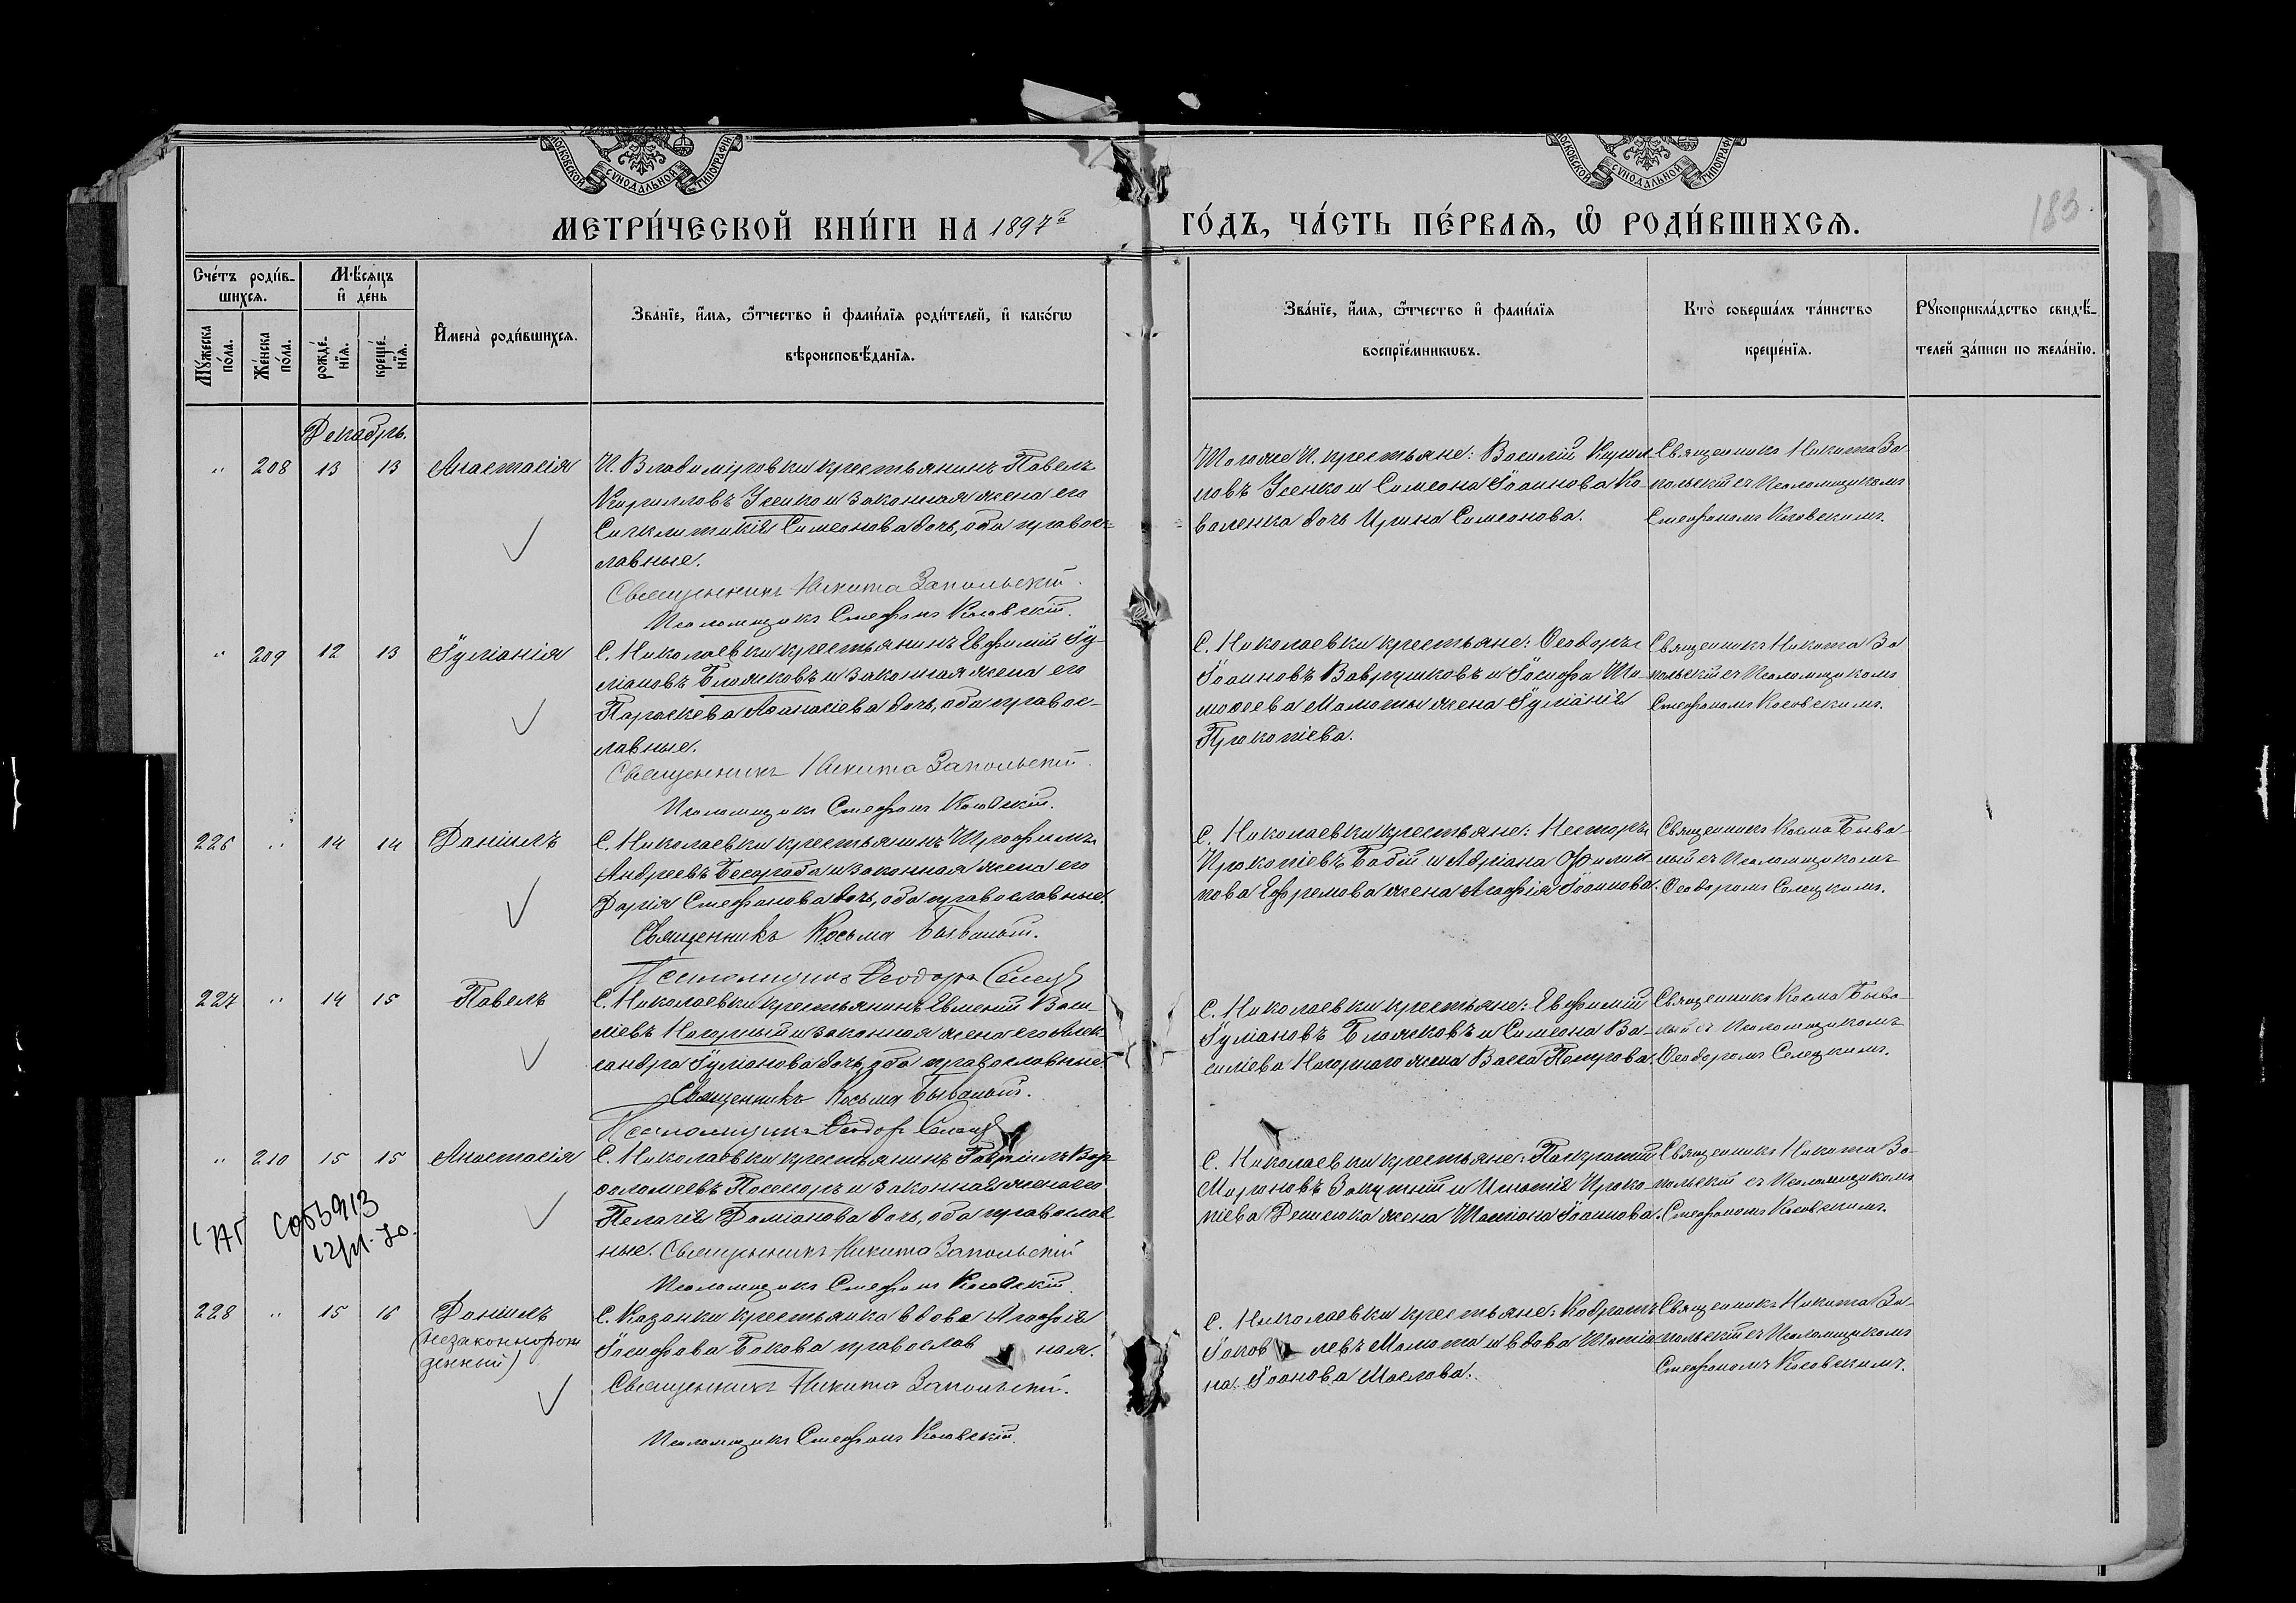 МОСКОВСКОЙ СѴНОДАЛЬНОЙ ТИПОГРАФІИ
МОСКОВСКОЙ СѴНОДАЛЬНОЙ ТИПОГРАФІИ
183.
МЕТРИ́ЧЕСКОЙ КНИ́ГИ НА 1897й
ГО́ДЪ, ЧА́СТЬ ПЕ́РВАѦ, Ѡ РОДИ́ВШИХСѦ.
Сче́тъ роди́в-
шихсѧ.
Мѣ́сѧцъ
и҆ де́нь
Мꙋ́жеска по́ла.
Же́нска по́ла.
рожде́-
нїѧ.
креще́-
нїѧ.
И҆мена̀ роди́вшихсѧ.
Зва́нїе, и҆́мѧ, ѻ҆́тчество и҆ фами́лїѧ роди́телей, и҆ како́гѡ
вѣроисповѣ́данїѧ.
Зва́нїе, и҆́мѧ, ѻ҆́тчество и҆ фами́лїѧ
воспрїе́мникѡвъ.
Кто̀ соверша́лъ та́инство
креще́нїѧ.
Рꙋкоприкла́дство свидѣ́-
телей за́писи по жела́нїю.
Декабрь.
" 208 13 13 Анастасія
И. Владиміровки крестьянинъ Павелъ
Кирилловъ Усенко и законная жена его
Синклитикія Симеонова дочь, оба правос-
лавные.
Священникъ Никита Запольскій.
Псаломщикъ Стефанъ Косовскій.
Тогоже И. крестьяне: Василій Кирил
ловъ Усенко и Симеона Іоаннова Ко-
валенка дочь Ирина Симеонова.
Священникъ Никита За
польскій съ Псаломщикомъ
Стефаномъ Косовскимъ.
" 209 12 13 Іуліанія
С. Николаевки крестьянинъ Евфимій Іу-
ліановъ Блажковъ и законная жена его
Параскева Аѳанасіева дочь, оба правос-
лавные.
Священникъ Никита Запольскій.
Псаломщикъ Стефанъ Косовскій.
С. Николаевки крестьяне: Ѳеодоръ
Іоанновъ Ваврушковъ и Іосифа Ти-
моѳеева Маматы жена Іуліанія
Прокопіева.
Священникъ Никита За
польскій съ Псаломщикомъ
Стефаномъ Косовскимъ.
226 " 14 14 Даніилъ
С. Николаевки крестьянинъ Трофимъ
Андреевъ Бесараба и законная жена его
Дарія Стефанова дочь, оба православные.
Священникъ Косьма Бывалый.
Псаломщикъ Ѳеодоръ Селецкій
С. Николаевки крестьяне: Несторъ
Прокопіевъ Бабій и Адріана Филип-
пова Ефремова жена Агафія Іоаннова.
Священникъ Косма Быва-
лый съ Псаломщикомъ
Ѳеодоромъ Селецкимъ.
227 " 14 15 Павелъ
С. Николаевки крестьянинъ Евменій Васи-
ліевъ Нагорный и законная жена его Алек-
сандра Іуліанова дочь, оба православные.
Священникъ Косьма Бывалый.
Псаломщикъ Ѳеодоръ Селецкій
С. Николаевки крестьяне: Евфимій
Іуліановъ Блажковъ и Симеона Ва-
силіева Нагорнаго жена Васса Петрова.
Священникъ Косма Быва-
лый съ Псаломщикомъ
Ѳеодоромъ Селецкимъ.
" 210 15 15 Анастасія
С. Николаевки крестьянинъ Гавріилъ Вар-
ѳоломеевъ Посеморъ и законная жена его
Пелагія Даміанова дочь, оба православ
ные. Священникъ Никита Запольскій
Псаломщикъ Стефанъ Косовскій.
С. Николаевки крестьяне: Панкратій
Мироновъ Закутній и Игнатія Проко-
піева Денисюка жена Татіана Іоаннова.
Священникъ Никита За-
польскій съ Псаломщикомъ
Стефаномъ Косовскимъ.
228 " 15 16 Даніилъ
(незаконнорож
денный)
С. Казанки крестьянка вдова Агафія
Іосифова Бокова православная.
Священникъ Никита Запольскій.
Псаломщикъ Стефанъ Косовскій.
С. Николаевки крестьяне: Кодратъ
Іаковлевъ Мамата и вдова Татіа
на Іоанова Маслова.
Священникъ Никита За-
польскій съ Псаломщикомъ
Стефаномъ Косовскимъ.